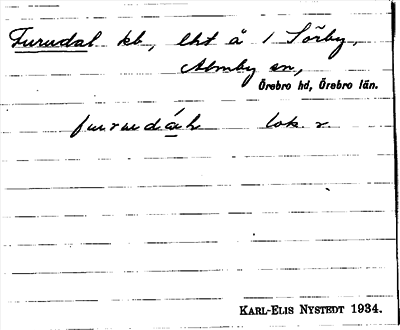 Furudal kb, lht å 1 Sörby,
Almby sn,
Örebro hd, Örebro län.
furudáh lok. r.
KARL-ELIS NYSTEDT 1934.